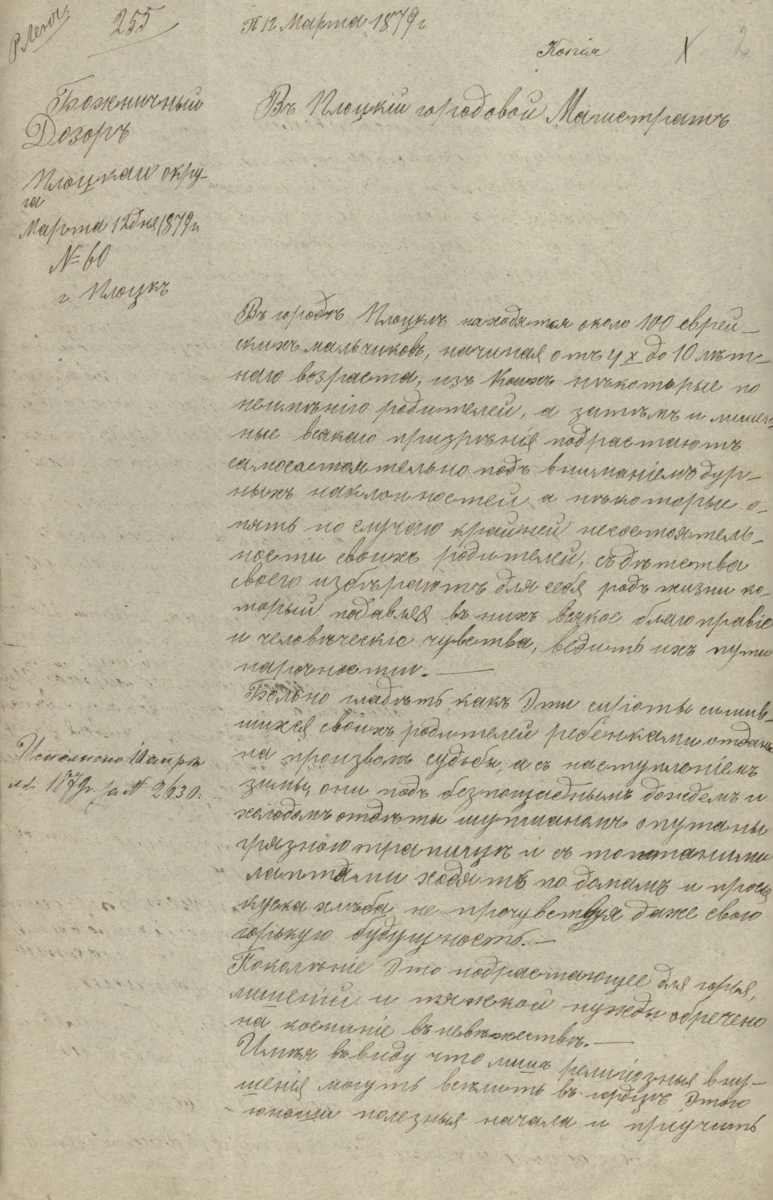 255
П 12 Марта 1879 г
Копія
2
Божничный
Дозоръ
Плоцкаго окру-
га
Марта 12 дня 1879 г.
№ 60
г. Плоцкъ
Въ Плоцкій городовой Магистратъ
Въ городѣ Плоцкѣ находятся около 100 еврей-
скихъ мальчиковъ, начиная отъ 4х до 10 лѣт-
няго возраста, изъ коихъ нѣкоторые по
неимѣнію родителей, а затѣмъ и лишен-
ные всякаго призрѣнія подрастаютъ
самосостоятельно подъ вниманіемъ дур-
ныхъ наклонностей а нѣкоторые о-
пять по случаю крайней несостоятель-
ности своихъ родителей, съ дѣтства
своего избѣраютъ для себя родъ жизни ко-
торый подавляя въ нихъ всякое благонравіе
и человѣческіе чувства, ведитъ ихъ пути
порочности.
Больно глядѣть какъ эти сироты
шихся своихъ родителей ребенками отданы
на произволъ судьбы, а съ наступленіемъ
зимы, они подъ безпощаднымъ дождемъ и
холодомъ отдѣты опутаны
грязною и съ топтаными
лаптями ходятъ по домамъ и прося
куска хлѣба, не прочувствуя даже свого
горькую будущность.
Поколѣніе это подрастающее для горья,
лишеній и тяжской нужды обречено
на косниніе въ невѣжествѣ.
Имѣя въ виду что лишь религіозныя вну-
шенія могутъ вселить въ сердцѣ этого
юноши полезныя начала и пріучить
Исполнено
1879 г. за № 2630.